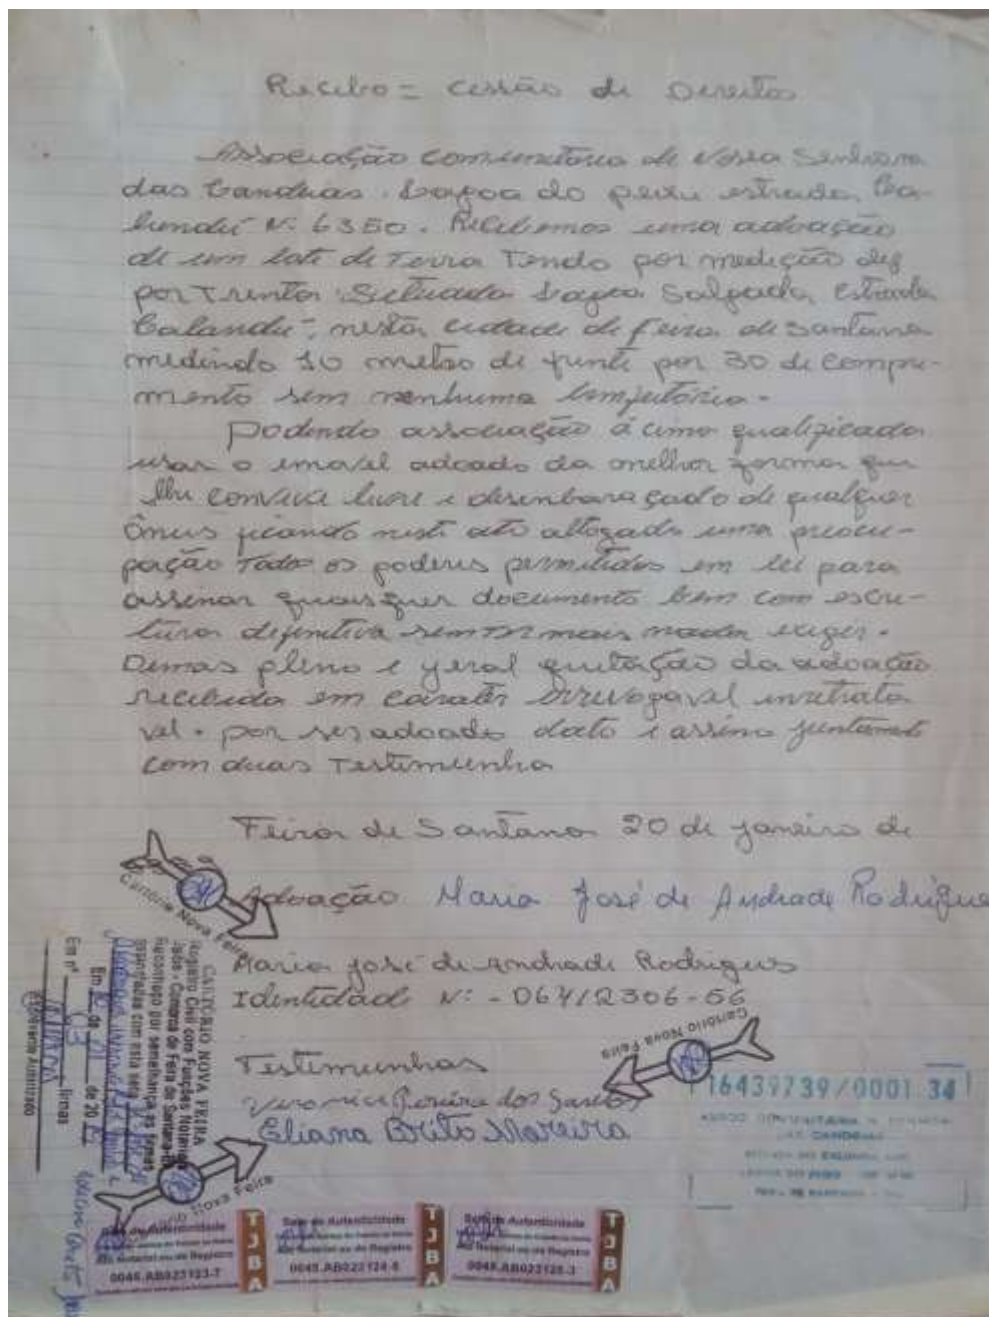 Recibo = cessão de Direitos
Associação comunitária de Nossa Senhora
das Candeias. Lagoa do peixe estrada Ca-
lundú N: 6350. Recebemos uma adoação
de um lote de Terra Tendo por medição dez
por Trinta Situada Lagoa Salgada, estrada
Calandú, nesta cidade de feira de santana
medindo 10 metso de frente por 30 de compri-
mento sem nenhuma
Podendo associação á cima qualificada
usar o imovel adoado da melhor forma que
lhe convier livre e desenbaraçado de qualquer
Ônus ficando nesti ato uma
Todos os poderes permitidos em lei para
assinar quaisquer documento bem com escri-
tura definitiva sem Ter mais nada exigir.
Demas pleno e geral quitação da adoação
recebida em carater irrevogavel inretrata
vel. por ser adoado dato e assino juntament
com duas Testimunha
Feira de Santana 20 de janeiro de
Adoação Maria José de Andrade Rodrigue
Maria José de Andrade Rodrigues
Identidade N: - 06412306-56
Testimunhas
Pereira dos Santos
Eliana Brito Moreira
Cartório Nova Feira
Cartório Nova Feira
Nova Feira
CARTÓRIO NOVA FEIRA
Registro Civil com Funções Notariais
Comarca de Feira de Santana-BA
Reconheço por semelhança as firmas
assinaladas com esta seta
Em de de 20
Em nº firmas
Escrevente Autorizado
16439739/0001 34
Selo de Autenticidade
Ato Notarial ou de Registro
0045.AB023123-7
TJBA
Selo de Autenticidade
Ato Notarial ou de Registro
0045.AB023124-5
TJBA
Selo de Autenticidade
Ato Notarial ou de Registro
0045.AB023125-3
TJBA